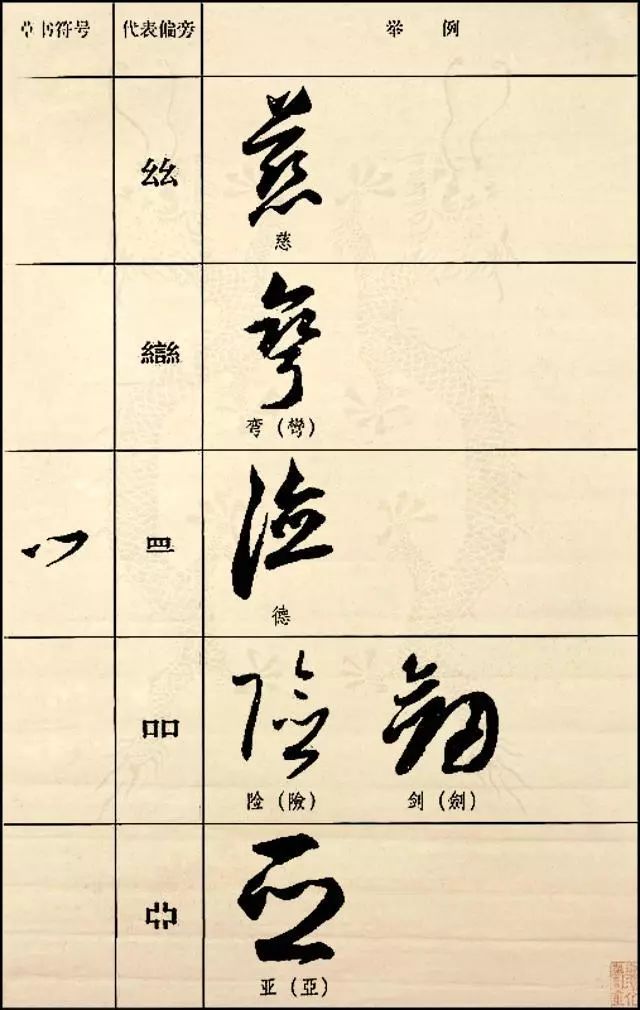 草书符号 代表偏旁 举例
𢆶
慈
䜌
弯（彎）
罒
德
吅
险（險） 剑（劍）
亚（亞）